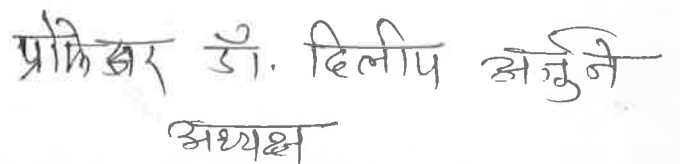 प्रोफेसर डॉ. दिलीप अर्जुने
अध्यक्ष